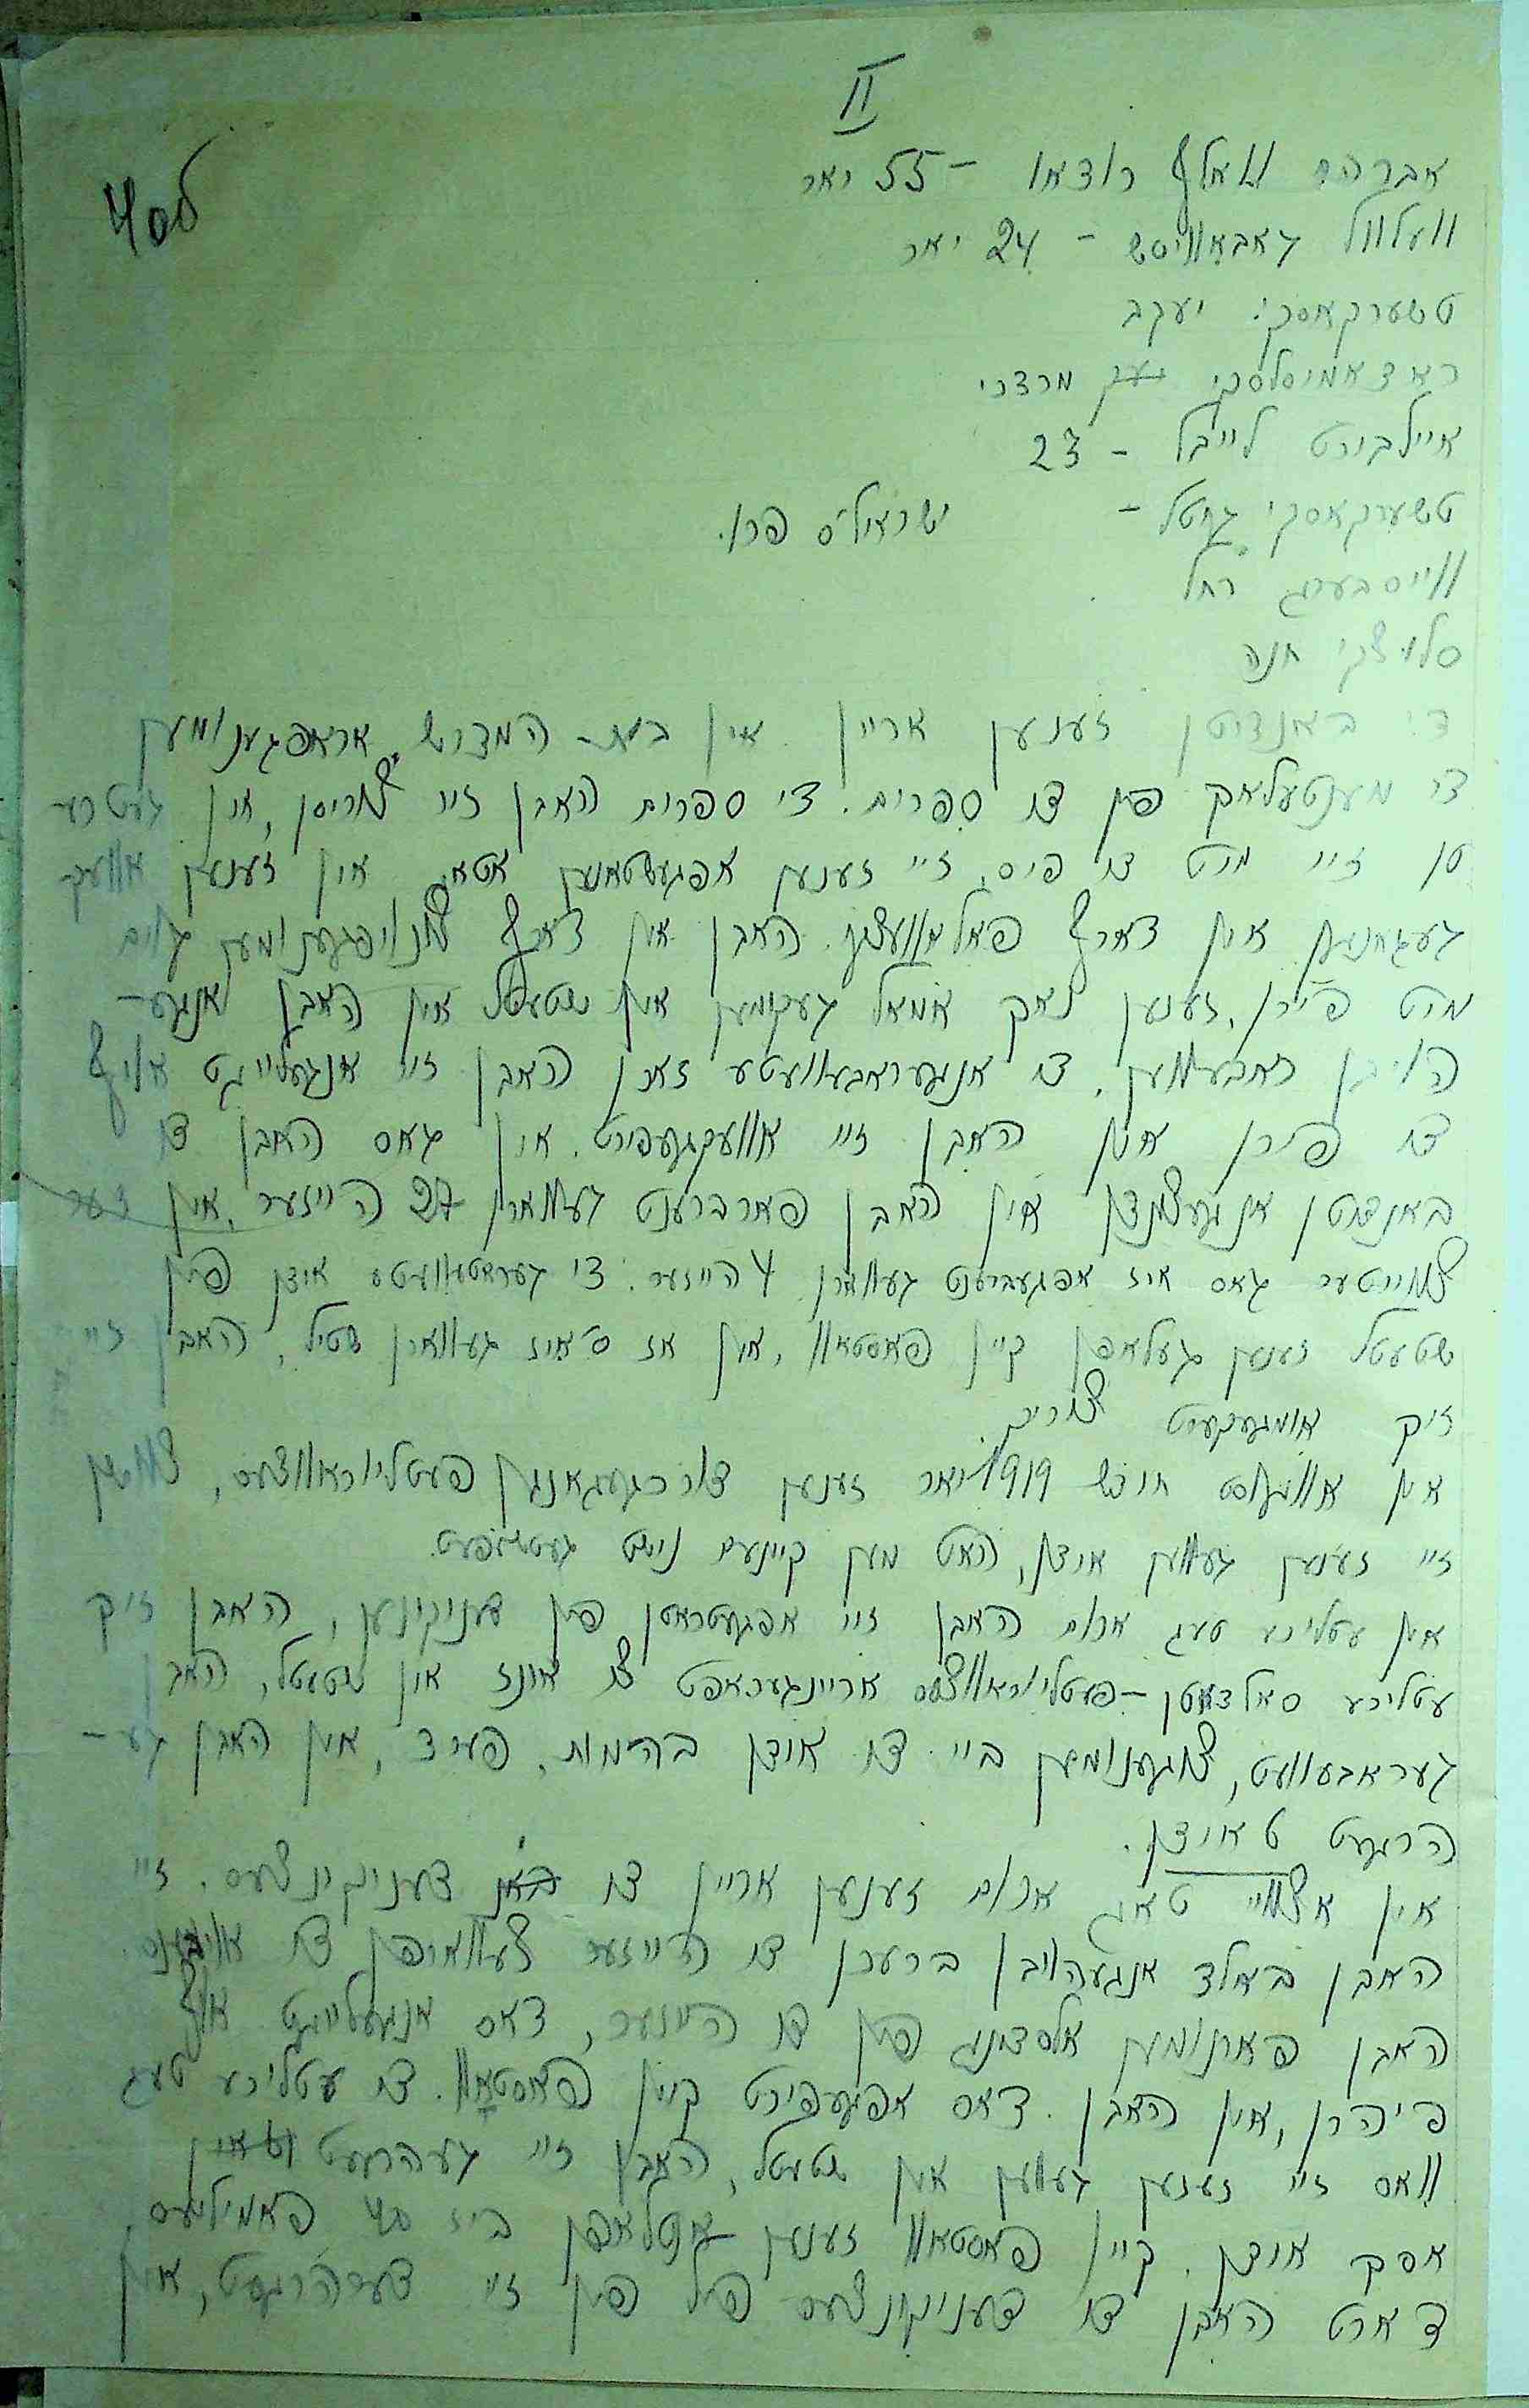 II
4об
אברהם וואלף רודאוו – 55 יאר
וועלוול ראבאוויטש – 24 יאר
טשערקאסקי יעקב
ראדאמיסלסקי מרדכי
אײלבורט לײבל – 23
טשערקאסקי גיטל – ישראל'ס פרוי.
ווײסבערג רחל
סלוצקי חנה
די באנדיטן זענען ארײן אין בית-המדרש, אראפגענומען
די מענטעלאך פון די ספרים. די ספרים האבן זײ צוריסן, און געטרע
טן זײ מיט די פיס. זײ זענען אפגעשטאנען און זענען אוועק
געגאנגען אין דארף האבן אין דארף צונויפגענומען גוים
מיט פירן, זענען נאך אמאל געקומען אין שטעטל און האבן אנגע-
הויבן ראבעווען. די אנגעראבעוועטע זאכן האבן זײ אנגעלײגט אויף
די פירן און האבן זײ אוועקגעפירט. אין גאס האבן די
באנדיטן אונטערגעצונדן און האבן פארברענט געווארן 27 הײזער, אין דער
צווײטער גאס איז אפגעברענט געווארן 4 הײזער. די געראטעוועטע אידן פון
שטעטל זענען געלאפן קײן פאסטאוו, און אז ס'איז געווארן שטיל, האבן זײ
זיך אומגעקערט צוריק.
אין אווגוסט חודש 1919 יאר זענען דורכגעגאנגען פעטליוראווצעס, צווישן
זײ זענען געווען אידן, האט מען קײנעם נישט געטשעפעט.
אין עטליכע טעג ארום האבן זײ אפגעטראטן פון דעניקינען, האבן זיך
עטליכע סאלדאטן-פעטליוראווצעס ארײנגעכאפט צו אונז אין שטעטל, האבן
געראבעוועט, צוגענומען בײ די אידן בהימות, פערד, און האבן גע-
הרגעט 6 אידן.
אין א צווײ טאג ארום זענען ארײן די דעניקינצעס. זײ
האבן באלד אנגעהויבן ברענען די הײזער צעווארפן די אויוונס.
האבן פארנומען אלסדינג פון די הײזער, דאס אנגעלײגט אויף
פיהרן, און האבן דאס אפגעפירט קײן פאסטאוו. די עטליכע טעג
וואס זײ זענען געווען אין שטעטל, האבן זײ געהרגעט
אסך אידן. קײן פאסטאוו זענען אנטלאפן ביז 40 פאמיליעס,
דארט האבן די דעניקינצעס פיל פון זײ דערהרגעט, און